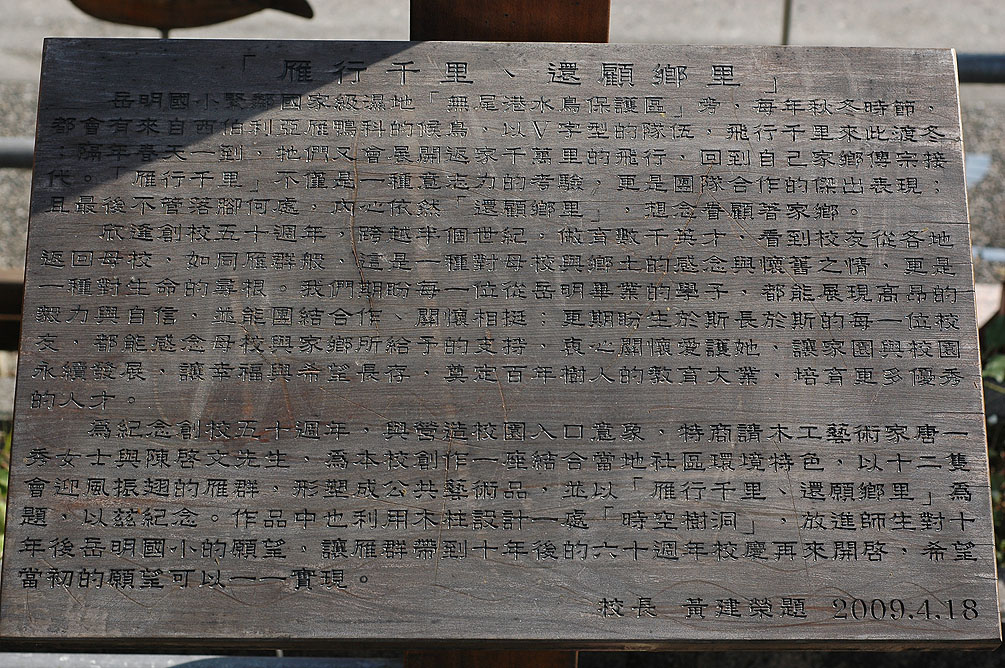 「雁行千里、還顧鄉里」
岳明國小緊鄰國家級濕地「無尾港水鳥保護區」旁，每年秋冬時節，
都會有來自西伯利亞雁鴨科的候鳥，以V字型的隊伍，飛行千里來此渡冬
；隔年春天一到，牠們又會展開返家千萬里的飛行，回到自己家鄉傳宗接
代。「雁行千里」不僅是一種意志力的考驗，更是團隊合作的傑出表現；
且最後不管落腳何處，內心依然「還顧鄉里」，想念眷顧著家鄉。
欣逢創校五十週年，跨越半個世紀，作育數千英才，看到校友從各地
返回母校，如同雁群般，這是一種對母校與鄉土的感念與懷舊之情，更是
一種對生命的尋根。我們期盼每一位從岳明畢業的學子，都能展現高昂的
毅力與自信，並能團結合作、關懷相挺；更期盼生於斯長於斯的每一位校
友，都能感念母校與家鄉所給予的支持，衷心關懷愛護她，讓家園與校園
永續發展，讓幸福與希望長存，奠定百年樹人的教育大業，培育更多優秀
的人才。
為紀念創校五十週年，與營造校園入口意象，特商請木工藝術家唐一
秀女士與陳啓文先生，為本校創作一座結合當地社區環境特色，以十二隻
會迎風振翅的雁群，形塑成公共藝術品，並以「雁行千里、還願鄉里」為
題，以茲紀念。作品中也利用木柱設計一處「時空樹洞」，放進師生對十
年後岳明國小的願望，讓雁群帶到十年後的六十週年校慶再來開啓，希望
當初的願望可以一一實現。
校長 黃建榮題 2009.4.18